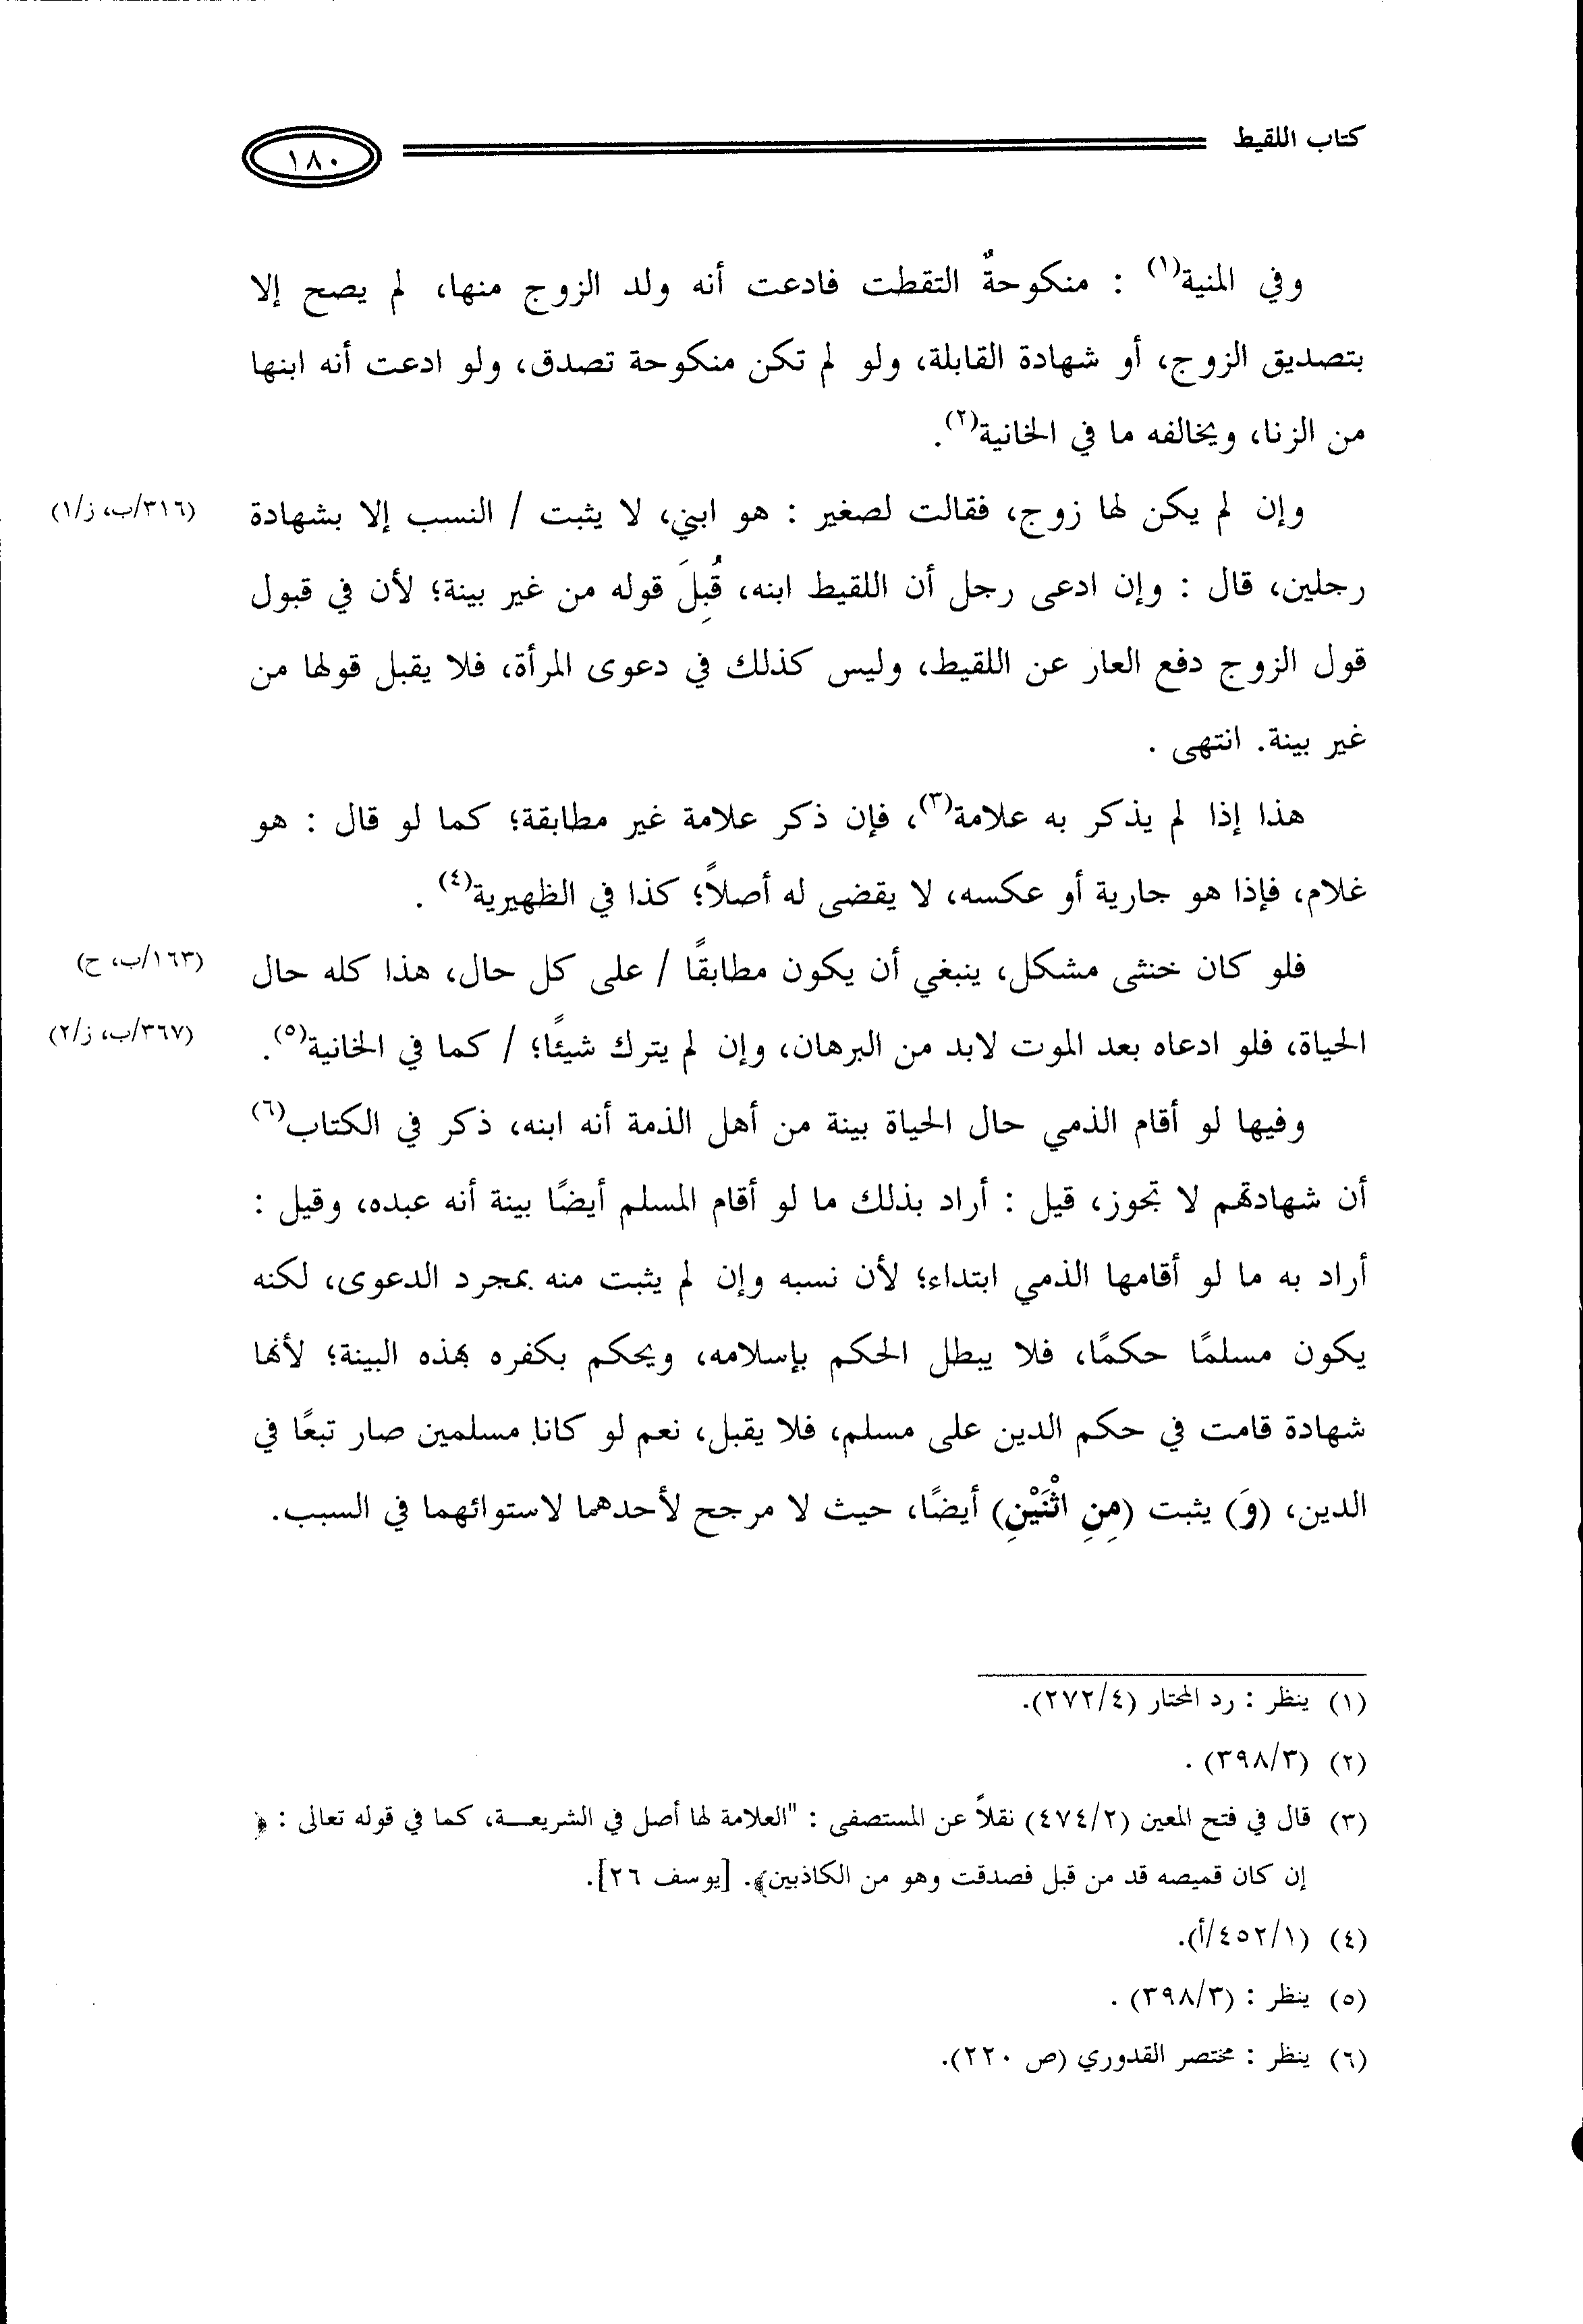 كتاب اللقيط
١٨٠
وفي المنية(١) : منكوحةٌ التقطت فادعت أنه ولد الزوج منها، لم يصح إلا
بتصديق الزوج، أو شهادة القابلة، ولو لم تكن منكوحة تصدق، ولو ادعت أنه ابنها
من الزنا، ويخالفه ما في الخانية(٢).
وإن لم يكن لها زوج، فقالت لصغير : هو ابني، لا يثبت / النسب إلا بشهادة
(٣١٦/ب، ز/١)
رجلين، قال : وإن ادعى رجل أن اللقيط ابنه، قُبِلَ قوله من غير بينة؛ لأن في قبول
قول الزوج دفع العار عن اللقيط، وليس كذلك في دعوى المرأة، فلا يقبل قولها من
غير بينة. انتهى .
هذا إذا لم يذكر به علامة(٣)، فإن ذكر علامة غير مطابقة؛ كما لو قال : هو
غلام، فإذا هو جارية أو عكسه، لا يقضى له أصلاً؛ كذا في الظهيرية(٤) .
فلو كان خنثى مشكل، ينبغي أن يكون مطابقًا / على كل حال، هذا كله حال
(١٦٣/ب، ح)
الحياة، فلو ادعاه بعد الموت لابد من البرهان، وإن لم يترك شيئًا؛ / كما في الخانية(٥).
(٣٦٧/ب، ز/٢)
وفيها لو أقام الذمي حال الحياة بينة من أهل الذمة أنه ابنه، ذكر في الكتاب(٦)
أن شهادتهم لا تجوز، قيل : أراد بذلك ما لو أقام المسلم أيضًا بينة أنه عبده، وقيل :
أراد به ما لو أقامها الذمي ابتداء؛ لأن نسبه وإن لم يثبت منه بمجرد الدعوى، لكنه
يكون مسلمًا حكمًا، فلا يبطل الحكم بإسلامه، ويحكم بكفره بهذه البينة؛ لأنها
شهادة قامت في حكم الدين على مسلم، فلا يقبل، نعم لو كانا مسلمين صار تبعًا في
الدين، (وَ) يثبت (مِنِ اثْنَيْنِ) أيضًا، حيث لا مرجح لأحدهما لاستوائهما في السبب.
(١) ينظر : رد المحتار (٢٧٢/٤).
(٢) (٣٩٨/٣) .
(٣) قال في فتح المعين (٤٧٤/٢) نقلاً عن المستصفى : "العلامة لها أصل في الشريعـــة، كما في قوله تعالى : ﴿
إن كان قميصه قد من قبل فصدقت وهو من الكاذبين﴾. [يوسف ٢٦].
(٤) (٤٥٢/١/أ).
(٥) ينظر : (٣٩٨/٣) .
(٦) ينظر : مختصر القدوري (ص ٢٢٠).